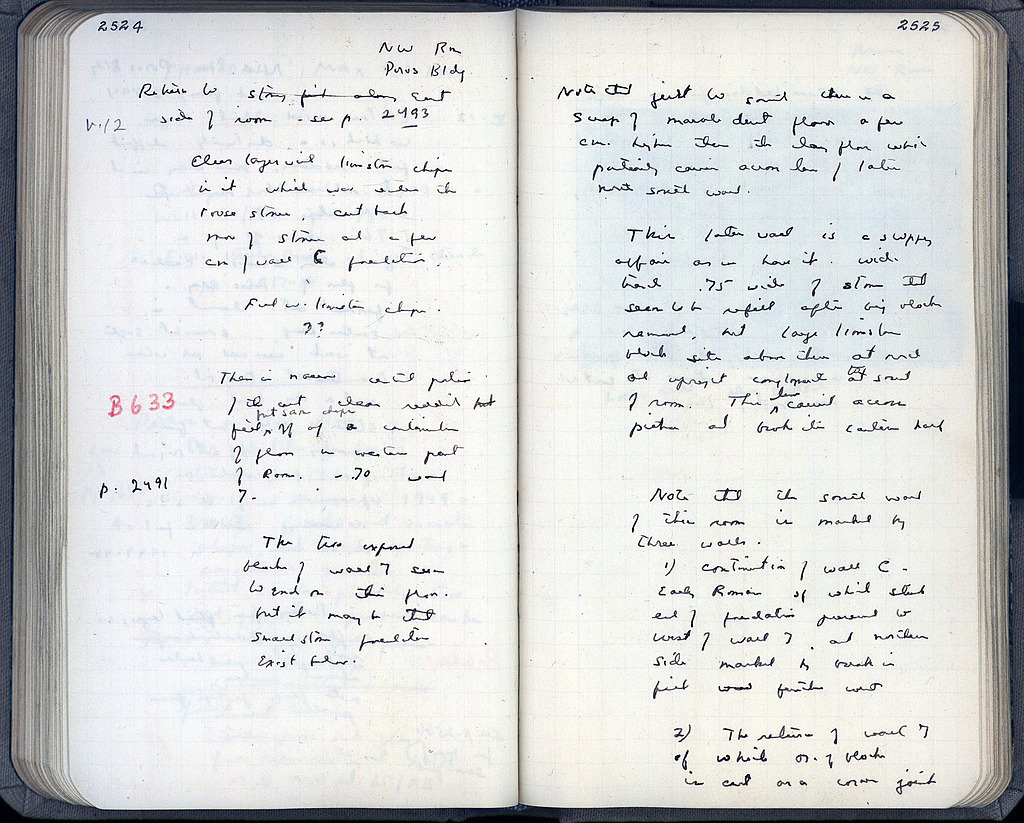 2524
NW Rm
Poros Bldg
Return to strip just along East
V.12 side of room - see p. 2493
Clear layer with limestone chips
in it which was under the
loose stones. cut back
row of stones at a few
cm of wall C foundation.
Full w. limestone chips.
??
Then in narrow central portion
B 633 of the cut clean reddish
put same chips
of a continuation
of floor in western part
of Room. - .70 wall
p. 2491 7.
The two exposed
blocks of wall 7 seem
to end on this floor.
but it may be that
small stone foundation
exist below.
2525
Note that just to south there is a
scrap of marble dust floor a few
cm. higher than the clay floor which
partially carries across line of later
north south wall.
This later wall is a sloppy
affair as we have it. wide
band .75 wide of stone that
seem to be refill after big blocks
removed, but large limestone
block sits above them at north
and upright conglomerate at the south
of room. This line carried across
picture and
Note that the south wall
of this room is marked by
three walls.
1) Continuation of wall C -
Early Roman of which stub
end of foundation preserved to
west of wall 7. and northern
side marked by break in
field further west
2) The return of wall 7
of which one of blocks
is cut as a corner joint